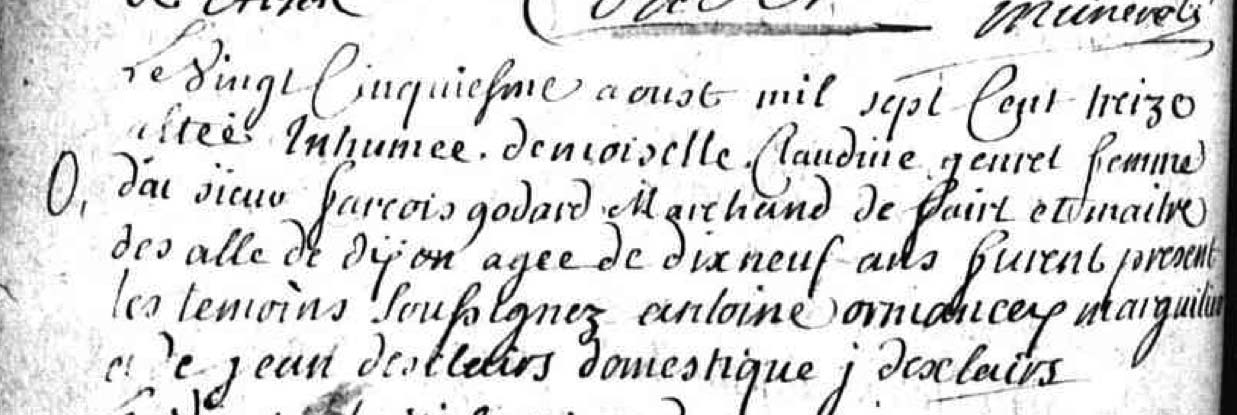 Le Vingt Cinquiesme aoust mil sept Cent treize
a ltée Inhumee. demoiselle Claudine genret femme
O, dai sieur francois godard Marchand de et maitre
des alle de dijon agee de dix neuf ans furent present
les temoins soussignez antoine ormancey marguilier
et de jean desclairs domestique j desclairs